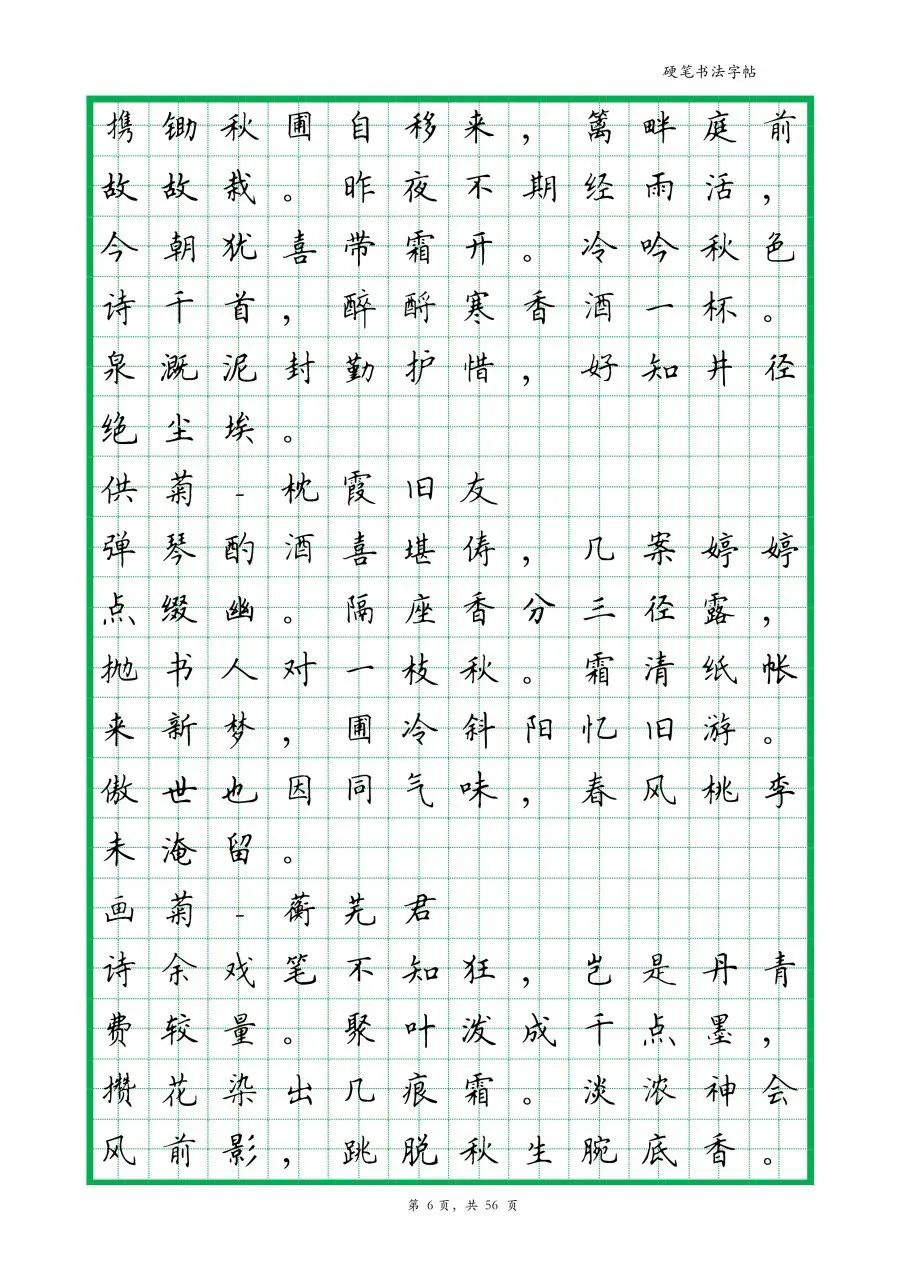 硬笔书法字帖
携锄秋圃自移来，篱畔庭前
故故栽。昨夜不期经雨活，
今朝犹喜带霜开。冷吟秋色
诗千首，醉酹寒香酒一杯。
泉溉泥封勤护惜，好知井径
绝尘埃。
供菊-枕霞旧友
弹琴酌酒喜堪俦，几案婷婷
点缀幽。隔座香分三径露，
抛书人对一枝秋。霜清纸帐
来新梦，圃冷斜阳忆旧游。
傲世也因同气味，春风桃李
未淹留。
画菊-蘅芜君
诗余戏笔不知狂，岂是丹青
费较量。聚叶泼成千点墨，
攒花染出几痕霜。淡浓神会
风前影，跳脱秋生腕底香。
第 6 页，共 56 页